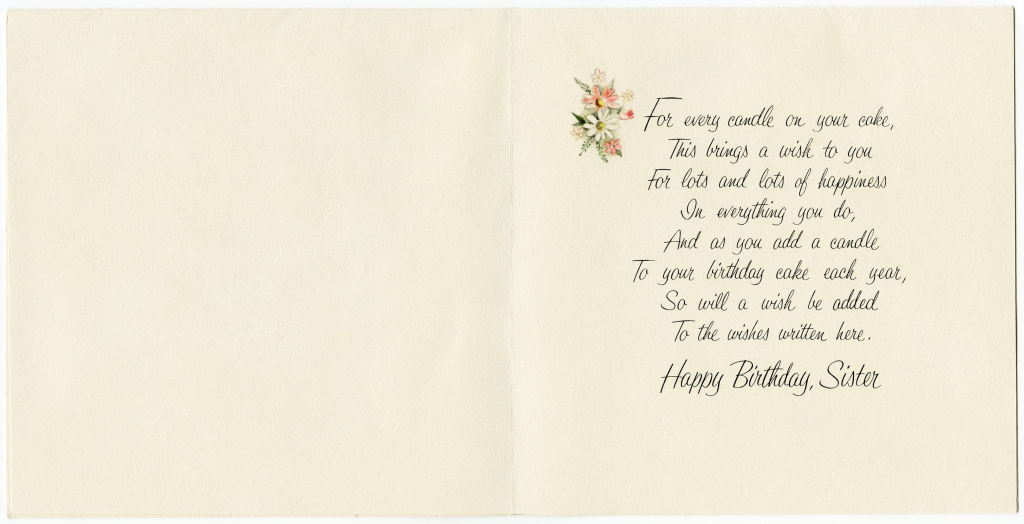 For every candle on your cake,
This brings a wish to you
For lots and lots of happiness
In everything you do,
And as you add a candle
To your birthday cake each year,
So will a wish be added
To the wishes written here.
Happy Birthday, Sister